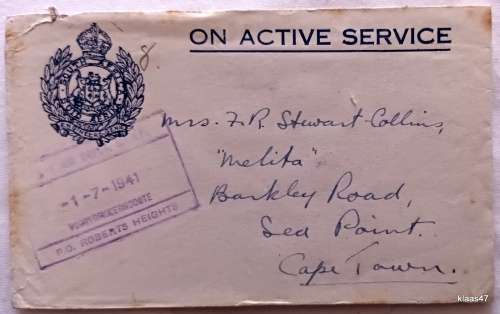 8.
ON ACTIVE SERVICE
SOUTH AFRICA
Mrs. F. R. Stewart-Collins,
"Melita"
Barkley Road,
Sea Point.
Cape Town.
-1-7-1941
P.O. ROBERTS HEIGHTS
klaas47